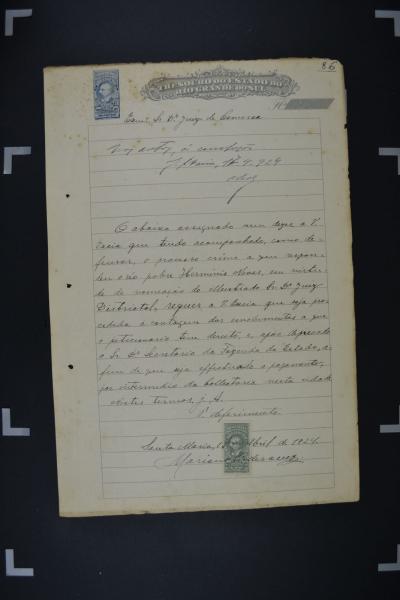 86
THESOURO DO ESTADO DO
RIO GRANDE DO SUL
Exmo. Sr. Dr. Juiz de Comarca
S. Maria, 14.4.924
O abaixo assignado vem dizer a V.
Excia que tendo acompanhado, como de-
fensor, o processo crime a que respon-
deu o réo pobre Herminio Neves, em virtu-
de de nomeação do Illustrado Sr. Dr. Juiz
Districtal, requer a V. Excia que seja pro-
cedida a contagem dos vencimentos a que
o peticionario tem direito, e após deprecado
o Sr. Dr. Secretario da Fazenda do Estado, a-
fim de que seja effectuado o pagamento,
por intermedio da Collectoria nesta cidade
nestes termos, j. A.
P. deferimento
Santa Maria, Abril de 1924
Mariano